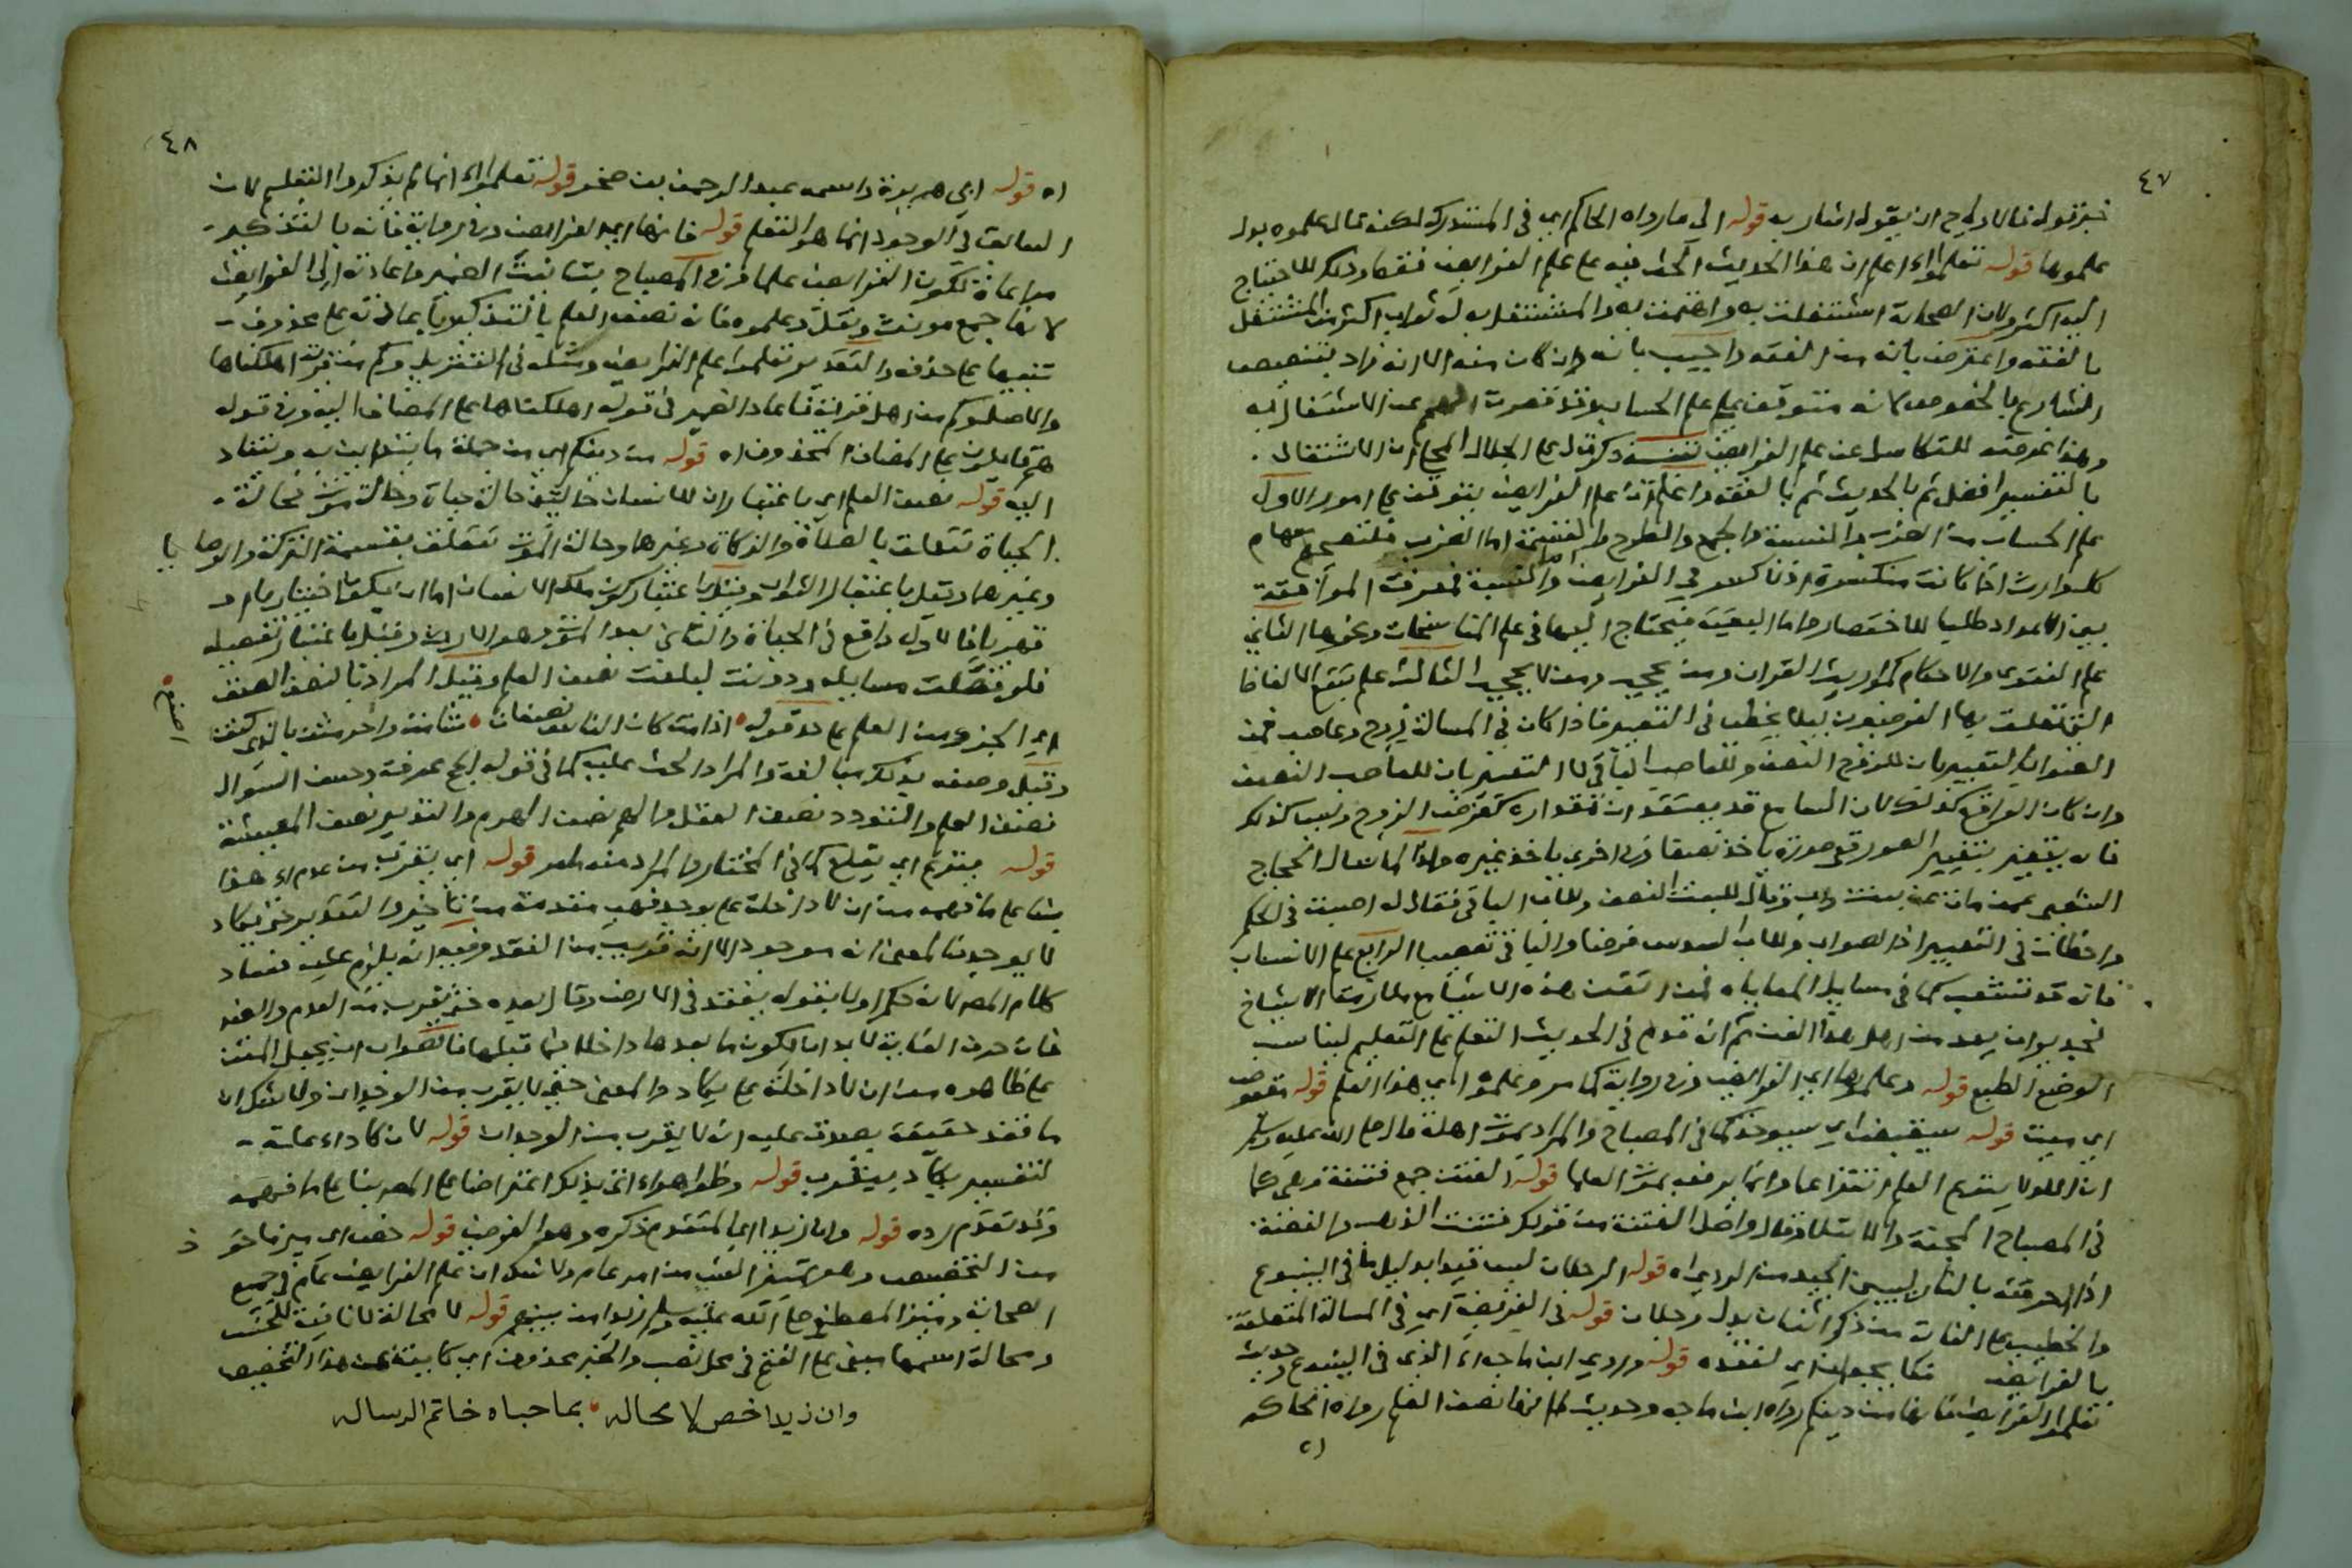 ٤٧
قوله الى ما رواه الحاكم اي في المستدرك لكنه قال علموه بدل
علموها قوله تعلموا اه اعلم ان هذا الحديث الحث فيه على علم الفرائض فقط وذلك للاحتياج
اليه اكثر ولان الصحابة اشتغلت به واهتمت به والمشتغل به له ثواب اكثر من المشتغل
بالفقه واعترض بانه من الفقه واجيب بانه وان كان منه الا انه زاد بتنصيص
الشارع بالخصوص لانه متوقف على علم الحساب وقد قصرت الهمم عن الاشتغال به
وهذا
بالتفسير افضل ثم بالحديث ثم بالفقه واعلم ان علم الفرائض يتوقف على امور الاول
علم الحساب من الضرب والقسمة والجمع والطرح والقسمة اما الضرب فلتصحيح سهام
كل وارث اذا كانت منكسرة والنسبة لمعرفة الموافقة
بين الاعداد طلبا للاختصار واما البقية فيحتاج اليها في علم المناسخات ونحوها الثاني
علم الفتوى والاحكام كمواريث القران ومن يحجب ومن لا يحجب الثالث علم تتبع الالفاظ
التي تعلمت بها الفرضيون ليلا يخطى في التعبير فاذا كان في المسالة زوج وعاصب فمن
الصواب التعبير بان للزوج النصف وللعاصب الباقي لا التعبير بان للعاصب النصف
وان كان الواقع كذلك لان السامع قد يعتقد ان مقداره كفرض الزوج وليس كذلك
فانه يتغير بتغيير الصور فتي صورة ياخذ نصفا وفي اخرى ياخذ غيره ولذا لما سال الحجاج
الشعبي عمن مات عن بنت واب وقال للبنت النصف وللاب الباقي فقال له اصبت في الحكم
واخطات في التعبير اذ الصواب وللاب السدس فرضا والباقي تعصيبا الرابع علم الانساب
فانه قد تتشعب كما في مسايل المعاياه فمن اتقن هذه الاشيا مع ملازمة الاشياخ
فجدير ان يعد من اهل هذا الفن ثم انه قدم في الحديث التعلم على التعليم ليناسب
الوضع الطبع قوله وعلموها اي الفرائض وفي رواية كما مر وعلموه اي هذا العلم قوله مقبوض
اي ميت قوله سيقبض اي سيوخذ كما في المصباح والمراد بموت اهله قال صلى الله عليه وسلم
ان الله لا ينتزع العلم انتزاعا وانما يرفعه بموت العلما قوله الفتن جمع فتنة وهي كما
في المصباح المحنة والابتلا وقال واصل الفتنة من قولك فتنت الذهب والفضة
اذا احرقته بالنار ليبين الجيد من الردي اه قوله الرجلان ليس قيدا بدليل ما في الينبوع
والخطيب على الغاية من ذكر اثنان بدل رجلان قوله في الفريضة اي في المسالة المتعلقة
بالفرائض قوله وروى ابن ماجه اه الذي في الينبوع حديث
تعلموا الفرائض فانها من دينكم رواه ابن ماجه وحديث فانها نصف العلم رواه الحاكم
اه
٤٨
اه قوله ابي هريرة واسمه عبد الرحمن بن صخر قوله تعلموا اه انما لم يذكروا التعليم لان
السابق في الوجود انما هو التعلم قوله فانها اي الفرائض وفي رواية فانه بالتذكير
مراعاة لكون الفرائض علما وفي المصباح بتانيث الضمير واعادته الى الفرائض
لانها جمع مونث ونقل وعلموه فانه نصف العلم بالتذكير باعادته على محذوف
تنبيها على حذفه والتقدير تعلموا علم الفرائض ومثله في التنزيل وكم من قرية اهلكناها
والاصل وكم من اهل قرية فاعاد الضمير في قوله اهلكناها على المضاف اليه وفي قوله
هم قائلون على المضاف المحذوف اه قوله من دينكم اي من جملة ما يتدين به وينقاد
اليه قوله نصف العلم اي باعتبار ان للانسان حالتين حالة حياة وحالة موت فحالة
الحياة تتعلق بالصلاة والزكاة وغيرها وحالة الموت تتعلق بقسمة التركة والوصايا
وغيرهما وقيل باعتبار الثواب وقيل باعتبار كون ملك الانسان اما ان يكون اختياريا او
قهريا فالاول واقع في الحياة والثاني بعد الموت وهو الارث وقيل باعتبار تفصيله
فلو فصلت مسايله ودونت لبلغت نصف العلم وقيل المراد بالنصف الصنف
اي الجزء من العلم على حد قوله اذا مت كان الناس نصفان شامت واخر مثن بالذي كنت
اصنع
وقيل وصفه بذلك مبالغة والمراد الحث عليه كما في قوله الحج عرفة وحسن السوال
نصف العلم والتودد نصف العقل والهم نصف الهرم والتدبير نصف المعيشة
قوله ينتزع اي يقلع كما في المختار والمراد منه قوله اي يقرب من عدم اه هذا
بنا على ما فهمه من ان لا داخلة على يوجد فهي مقدمة من تاخير والتقدير حتى يكاد
لا يوجد فالمعنى انه موجود الا انه قريب من الفقد وفيه انه يلزم عليه فساد
كلام المصنف لانه حكم اولا بقوله يفقد في الارض وقال بعده حتى يقرب من العدم والفقد
فان حرف الغاية لا بد ان يكون ما بعدها داخلا فيما قبلها فالصواب ان يجعل المتن
على ظاهره من ان لا داخلة على يكاد والمعنى حتى لا يقرب من الوجدان ولا شك ان
ما فقد حقيقة يصدق عليه انه لا يقرب من الوجدان قوله لان كاد اه علة
لتفسير يكاد بيقرب قوله وظواهر اه اتى بذلك اعتراضا على المصنف بنا على ما فهمه
وقد تقدم رده قوله وان زيدا اي المتقدم ذكره وهو الفرضي قوله خص اي ميز ماخوذ
من التخصيص وهو تمييز الشي من امر عام ولا شك ان علم الفرائض عام في جميع
الصحابة وميز المصطفى صلى الله عليه وسلم زيدا من بينهم قوله لا محالة لا نافية للجنس
ومحالة اسمها مبني على الفتح في محل نصب والخبر محذوف اي كاينة عن هذا التخصيص
وان زيدا خص لا محاله بما حباه خاتم الرساله